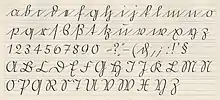 a b c d e f g h i j k l m n o
p q r s ß t tz u v w x y z
1 2 3 4 5 6 7 8 9 0 -?"-(&),;:!§
A B C D E F G H I J K L M N
O P Q R S T U V W X Y Z